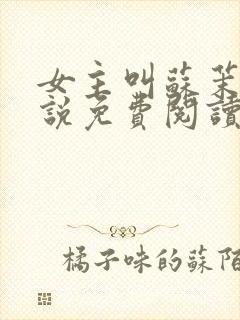 女主叫蘇茉
說免費閱讀
橘子味的蘇陌